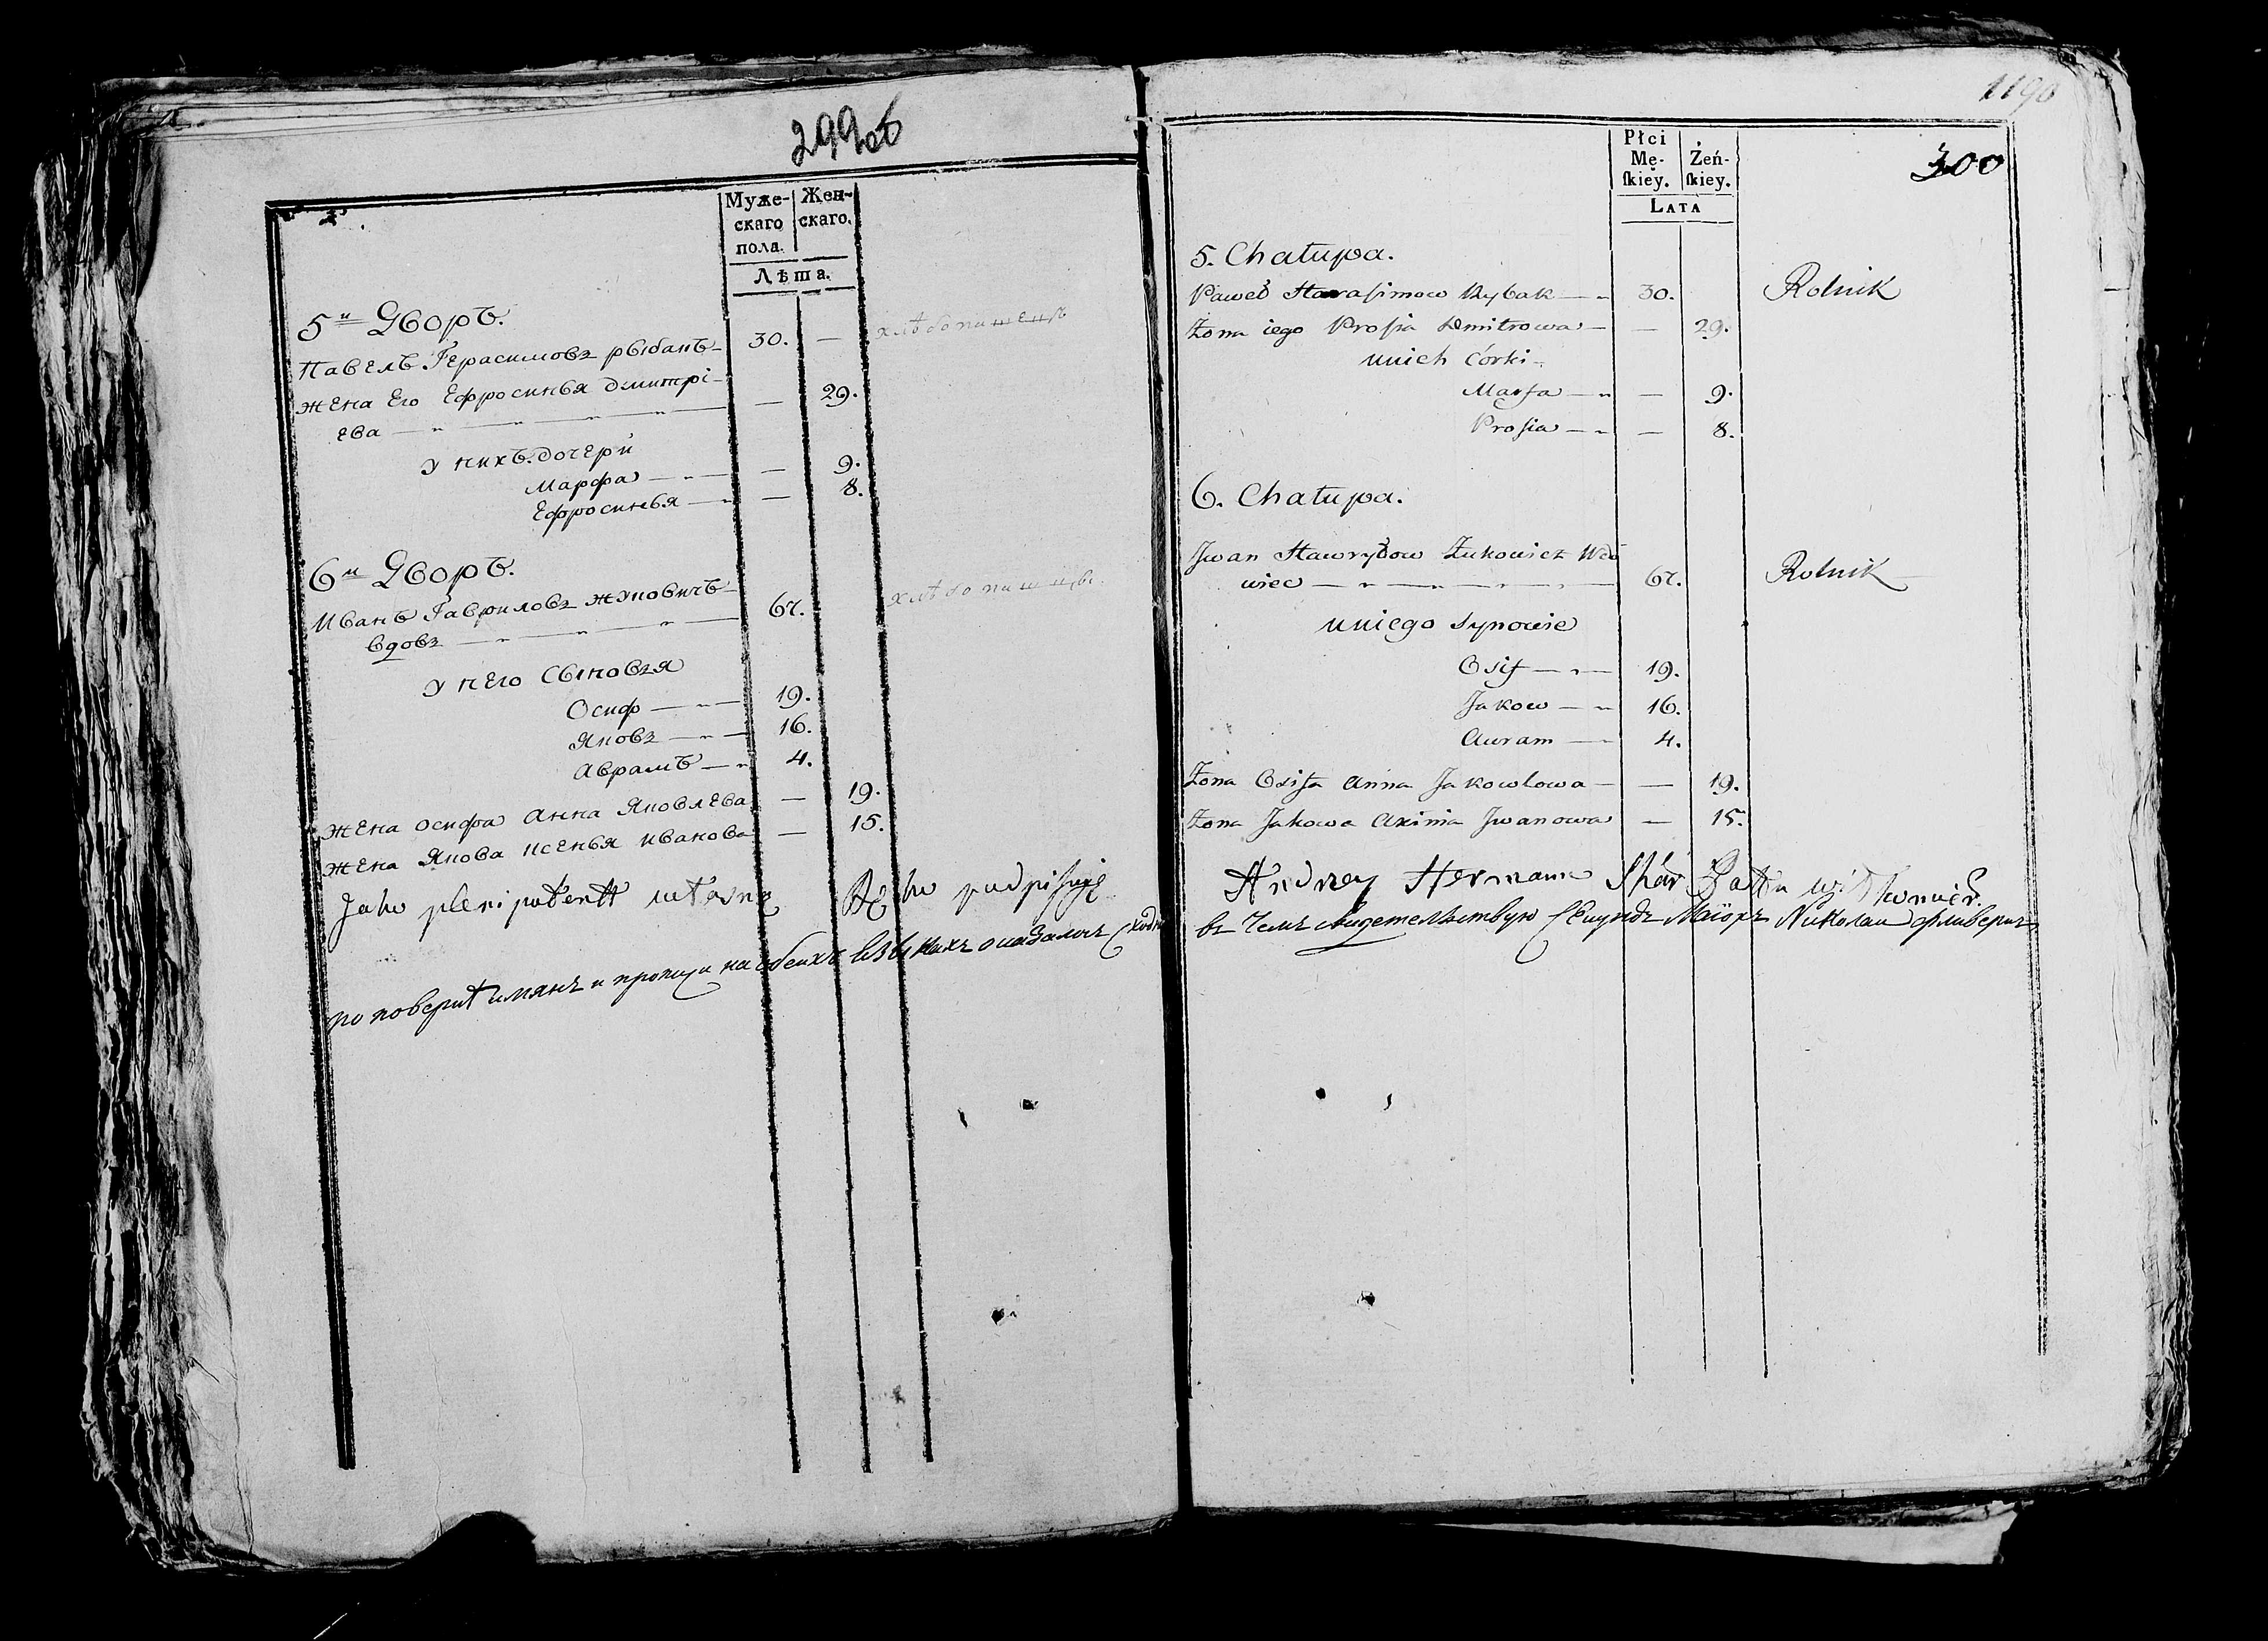 299 об
Муже-
скаго
пола.
Жен-
скаго.
Лѣта.
5й Дворъ.
Павелъ Герасимовъ рыбакъ — 30. —
хлѣбопашецъ
жена его Ефросинья дмитрі-
ева — — — 29.
у нихъ дочери
Марфа — — 9.
Ефросинья — — 8.
6й Дворъ.
Иванъ Гавриловъ жуковичъ
вдовъ — — — 67.
хлѣбопашецъ
у него сыновья
Осифъ — 19.
Яковъ — 16.
Аврамъ — 4.
жена осифа Анна Яковлева — 19.
жена Якова Ксенья иванова — 15.
Jako plenipotent własną Ręko podpisuję
по поверке имянъ и протчи на обеихъ языкахъ оказалось сходно
1190
300
Płci
Mę-
skiey.
Żeń-
skiey.
LATA
5. Chałupa.
Paweł Harasimow Rybak — 30.
Rolnik
Żona iego Prosia Dmitrowa — — 29.
u nich Córki
Marfa — — 9.
Prosia — — 8.
6. Chałupa.
Jwan Hawryłow Żukowicz Wdo
wiec — — — 67.
Rolnik
u niego Synowie
Osif — 19.
Jakow — 16.
Auram — 4.
Żona Osifa Anna Jakowlowa — — 19.
Żona Jakowa Axinia Jwanowa — 15.
Andrzey Hermann
въ чемъ свидетельствую Секундъ Маїоръ Николай